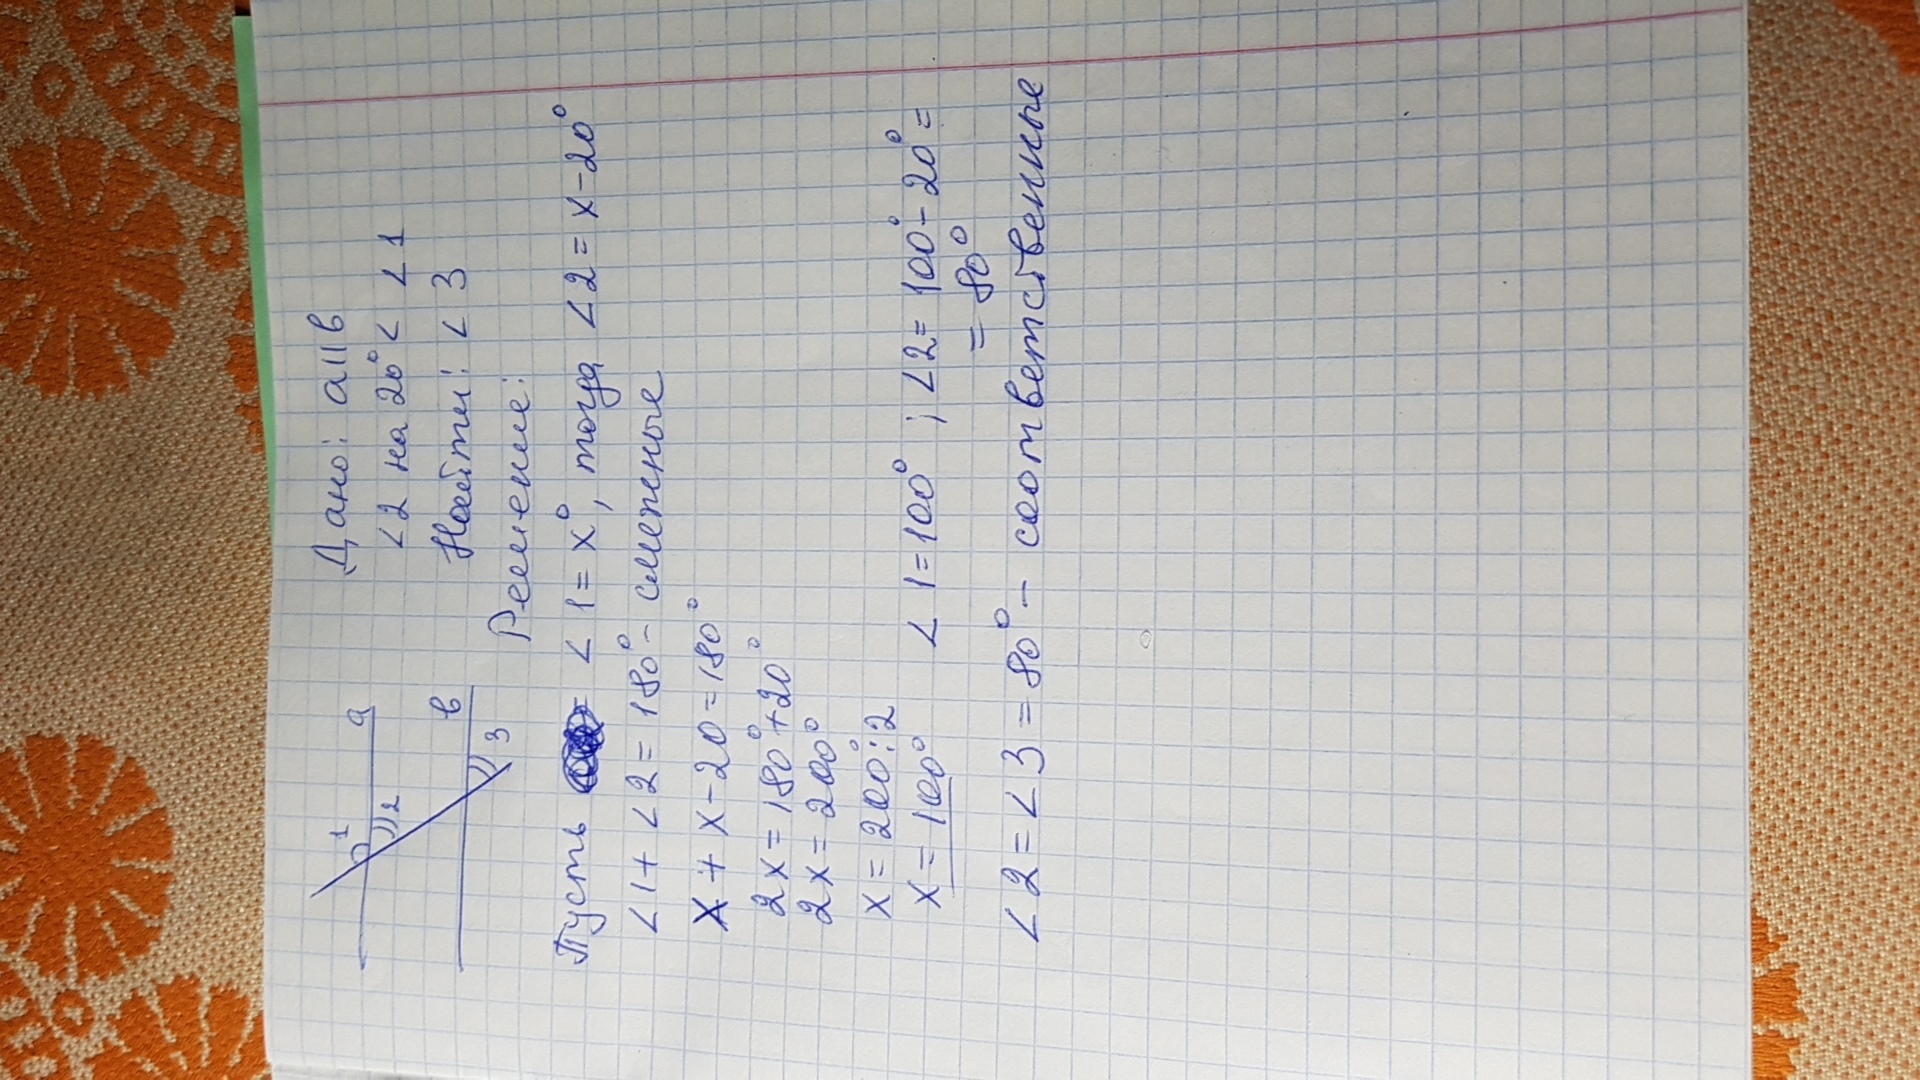 Дано: a||в
∠2 на 20° < ∠1
Найти: ∠3
Решение:
a
1
2
в
3
Пусть ∠1=x°, тогда ∠2=x-20°
∠1+∠2=180° - смежные
x+x-20=180°
2x=180°+20°
2x=200°
x=200°:2
x=100°
∠1=100° ; ∠2=100°-20°=
=80°
∠2=∠3=80° - соответственные